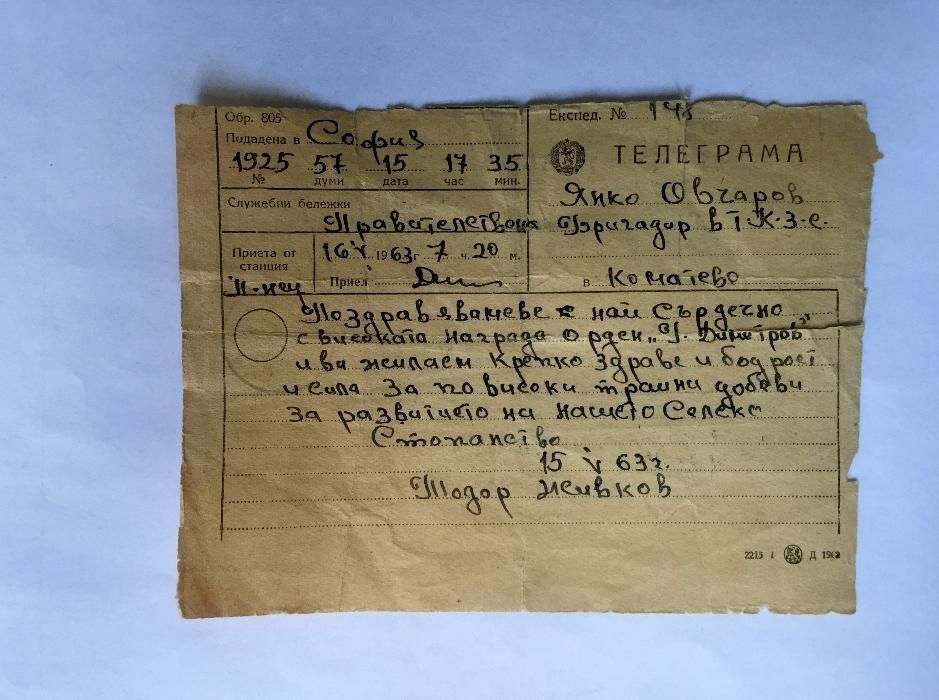 Обр. 805
Експед. №
Подадена в София
ТЕЛЕГРАМА
1925 57 15 17 35
№ думи дата час мин.
Янко Овчаров
Служебни бележки
Правителствена
Бригадир в Т.К.З.С.
Приета от станция
16 V 1963 г 7 ч. 20 м.
П-нци Приел
в Коматево
Поздравяваневе с най сърдечно
с високата награда орден „Г. Димитров"
и ви жилаем Крепко Здраве и бодрост
и сила За по високи трайни добеви
За развитието на нашето Селско
Стопанство
15 V 63 г.
Тодор Живков
2215 I Д 1962